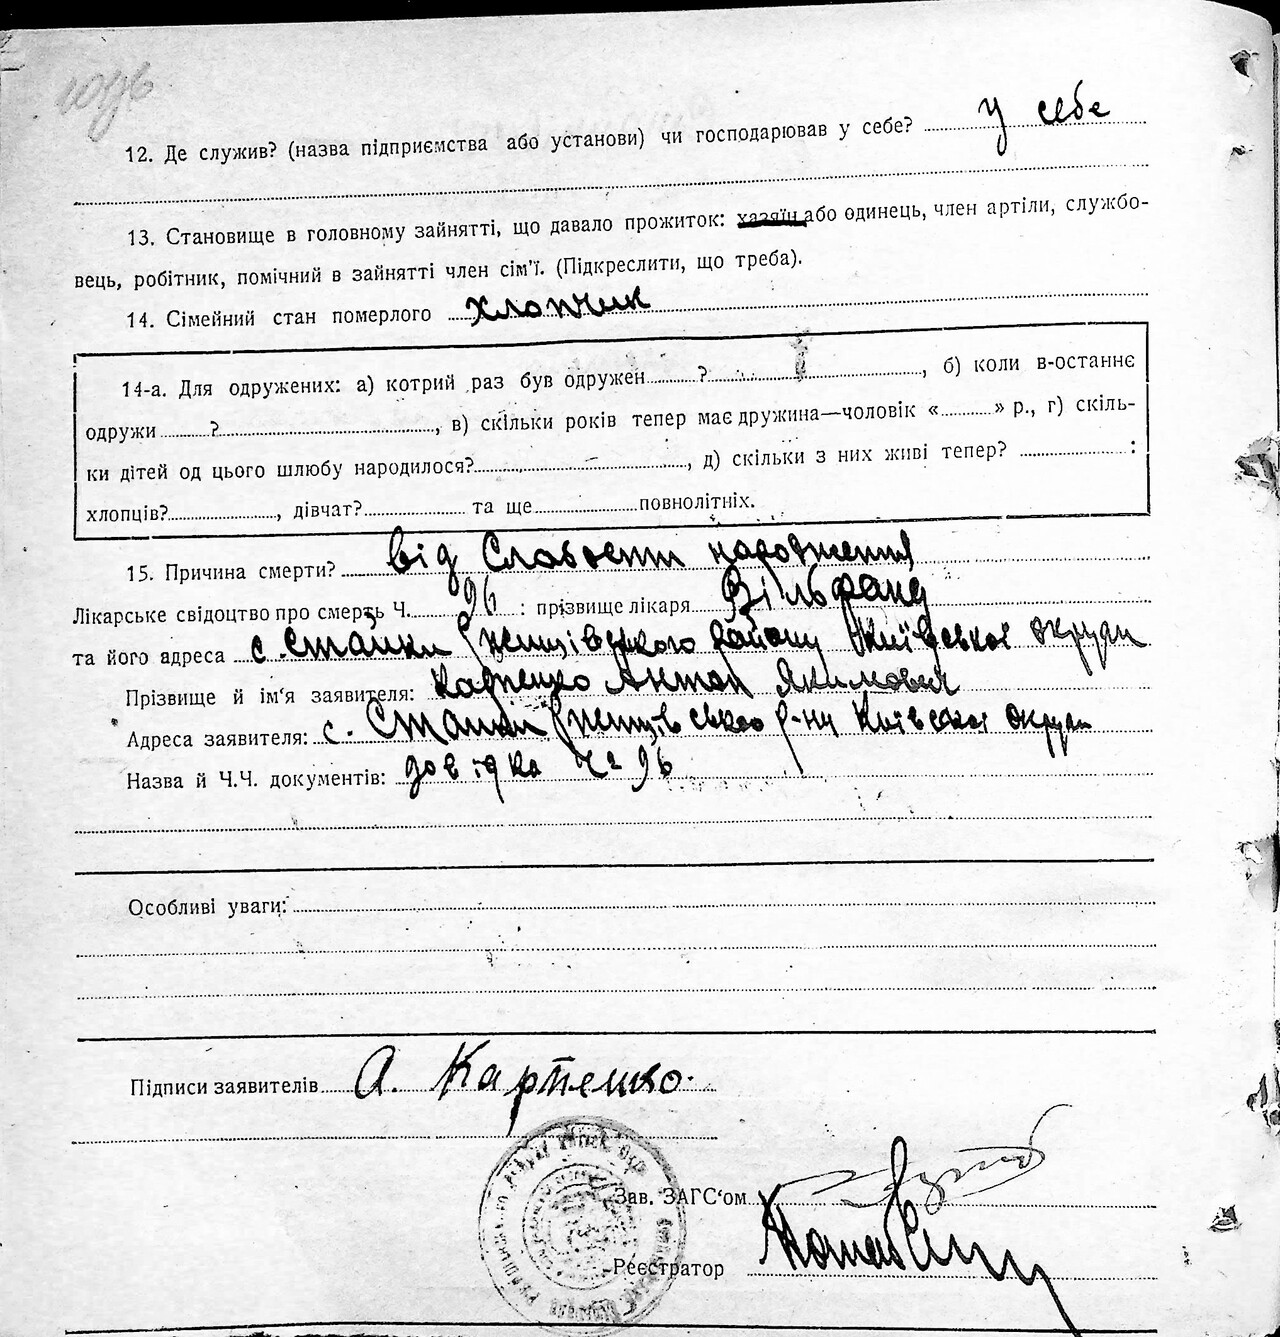 12. Де служив? (назва підприємства або установи) чи господарював у себе? у себе
13. Становище в головному зайнятті, що давало прожиток: хазяїн або одинець, член артіли, службо-
вець, робітник, помічний в зайнятті член сім'ї. (Підкреслити, що треба).
14. Сімейний стан померлого хлопчик
14-а. Для одружених: а) котрий раз був одружен ? , б) коли в-останнє
одружи ? , в) скільки років тепер має дружина—чоловік « » р., г) скіль-
ки дітей од цього шлюбу народилося? , д) скільки з них живі тепер? :
хлопців? , дівчат? та ще повнолітніх.
15. Причина смерти? від Слабости народження
Лікарське свідоцтво про смерть Ч. 96 : прізвище лікаря Вільфанд
та його адреса с. Стайки Ржищівського району Київської округи
Прізвище й ім'я заявителя: Антон Якимович
Адреса заявителя: с. Стайки Ржищівського р-ну Київської округи
Назва й Ч.Ч. документів: довідка Ч 96
Особливі уваги:
Підписи заявителів А. Карпенко.
Зав. ЗАГС'ом
Реєстратор